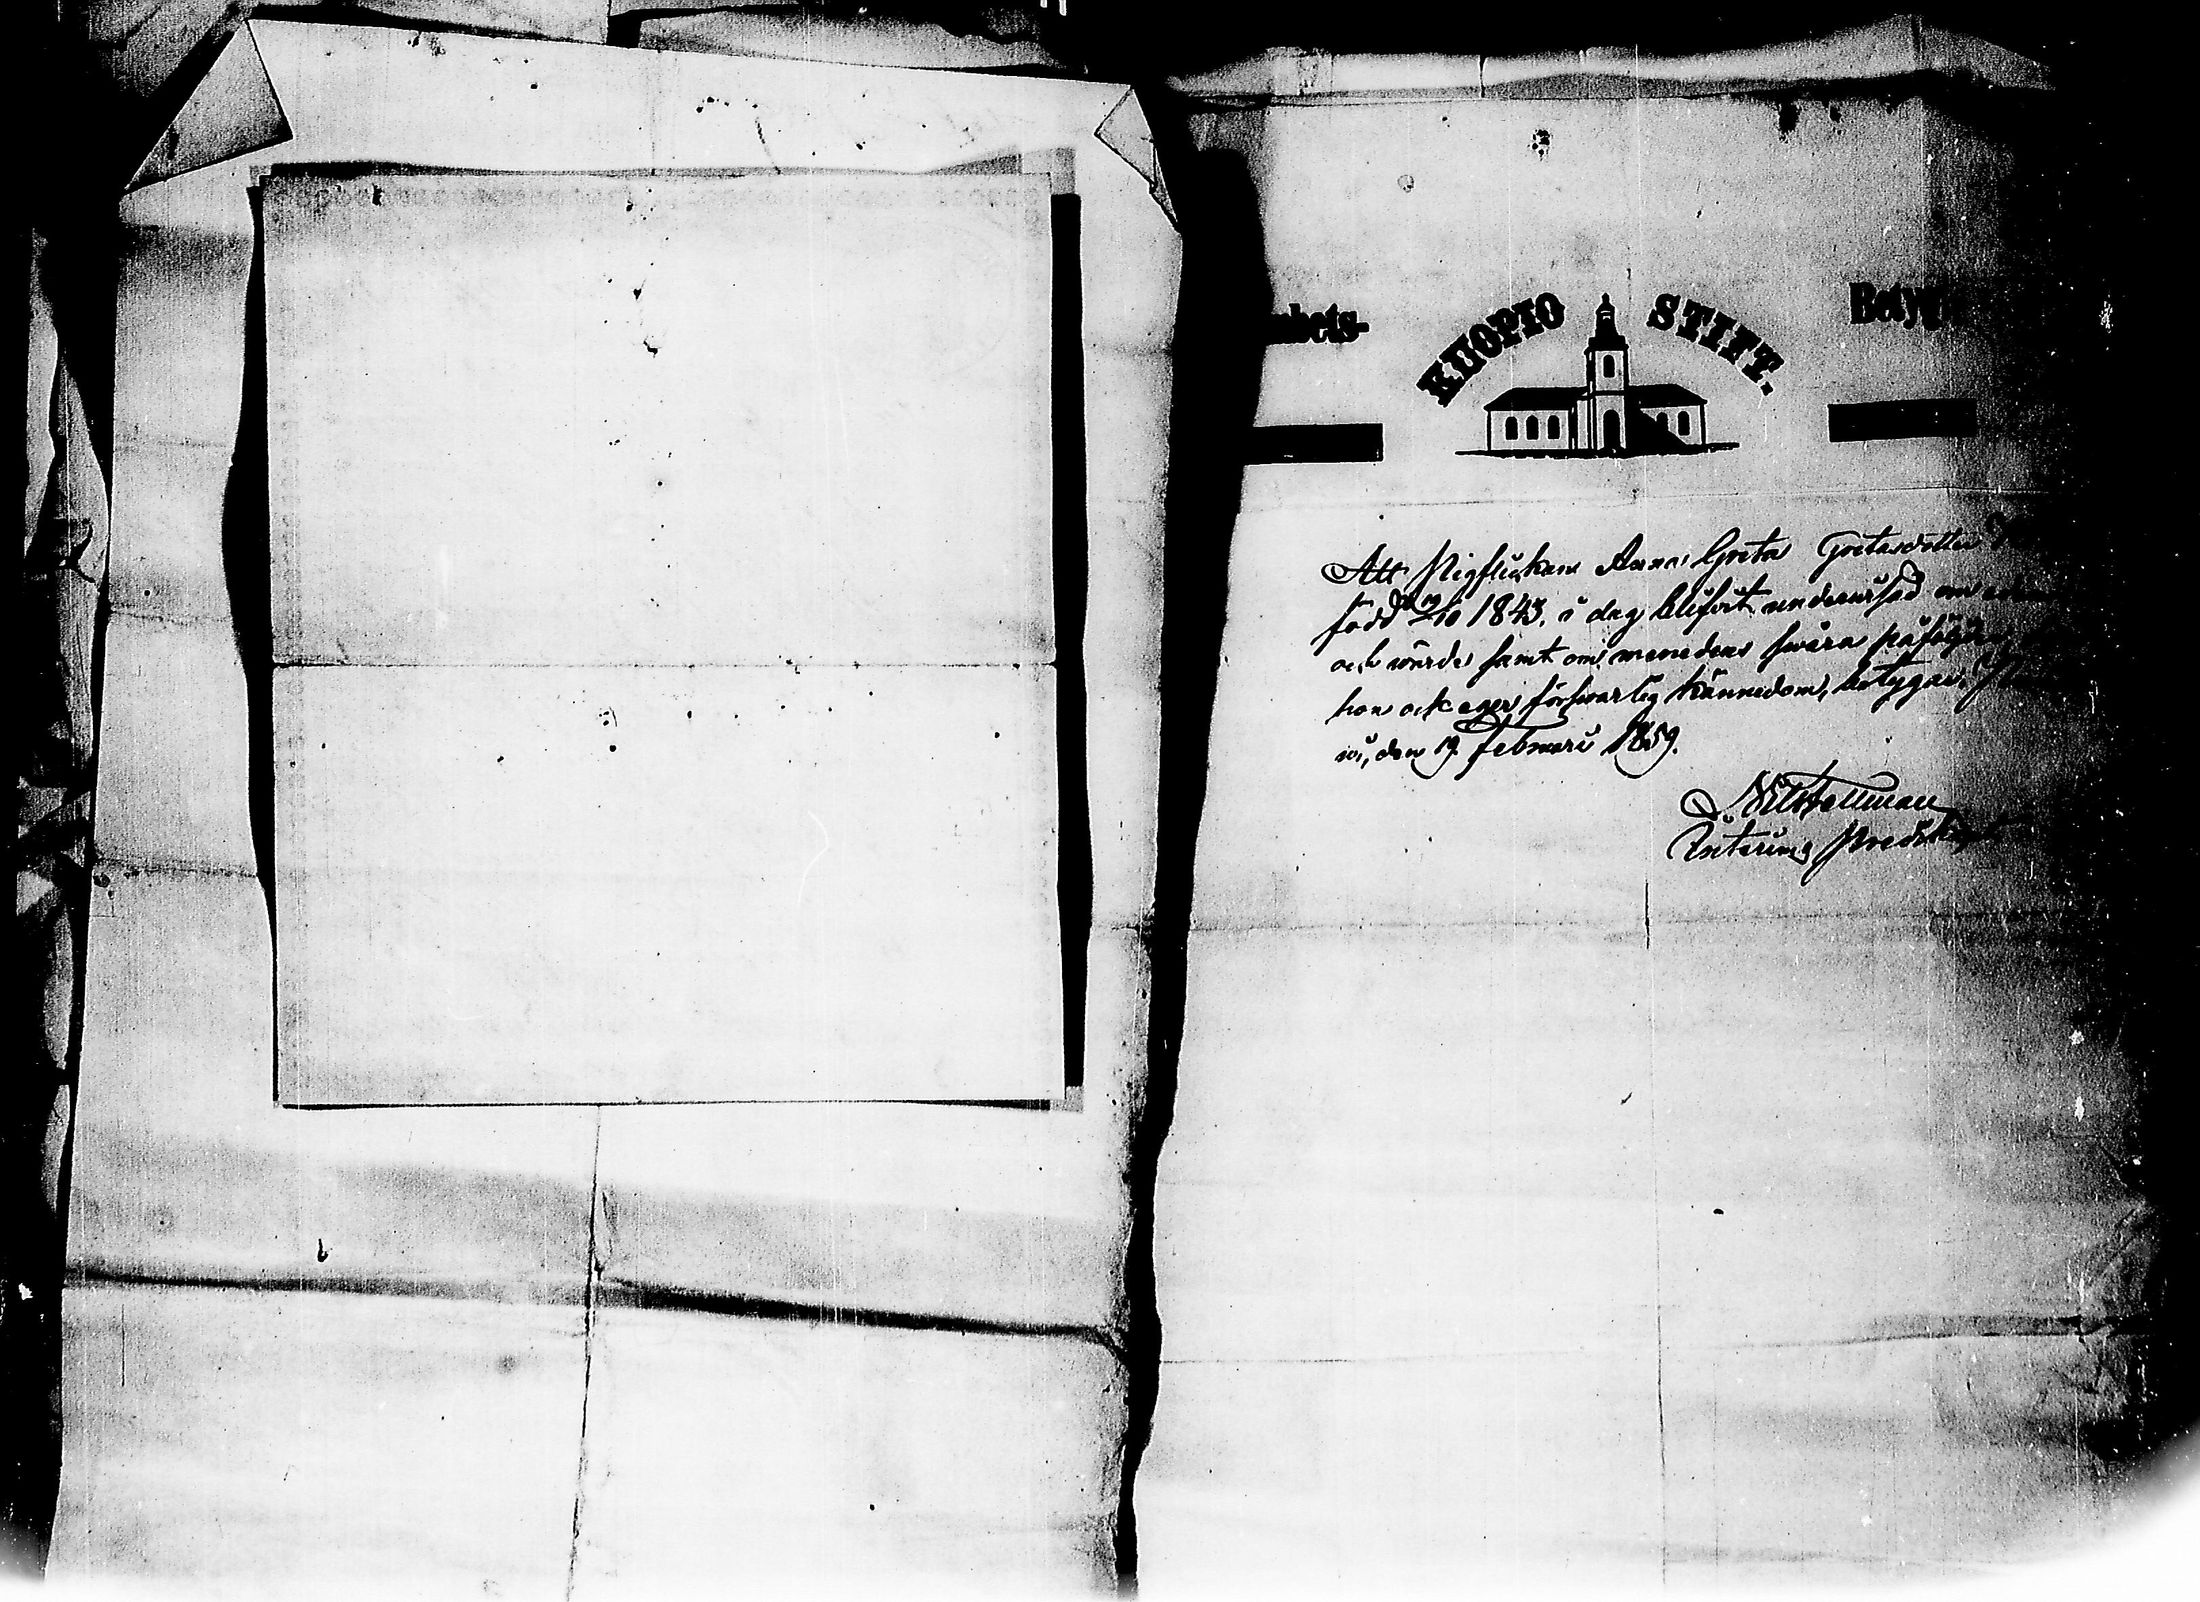 KUOPIO STIFT.
Att Pigflickan Anna Greta Gretasdotter
född 19/10 1843. i dag blifvit underwisad om edens
och wärde samt om menedens swåra påföljder
hon ock eger förswarlig kännedom, betygar.
wi, den 19 Februari 1859.
Interims Predikant